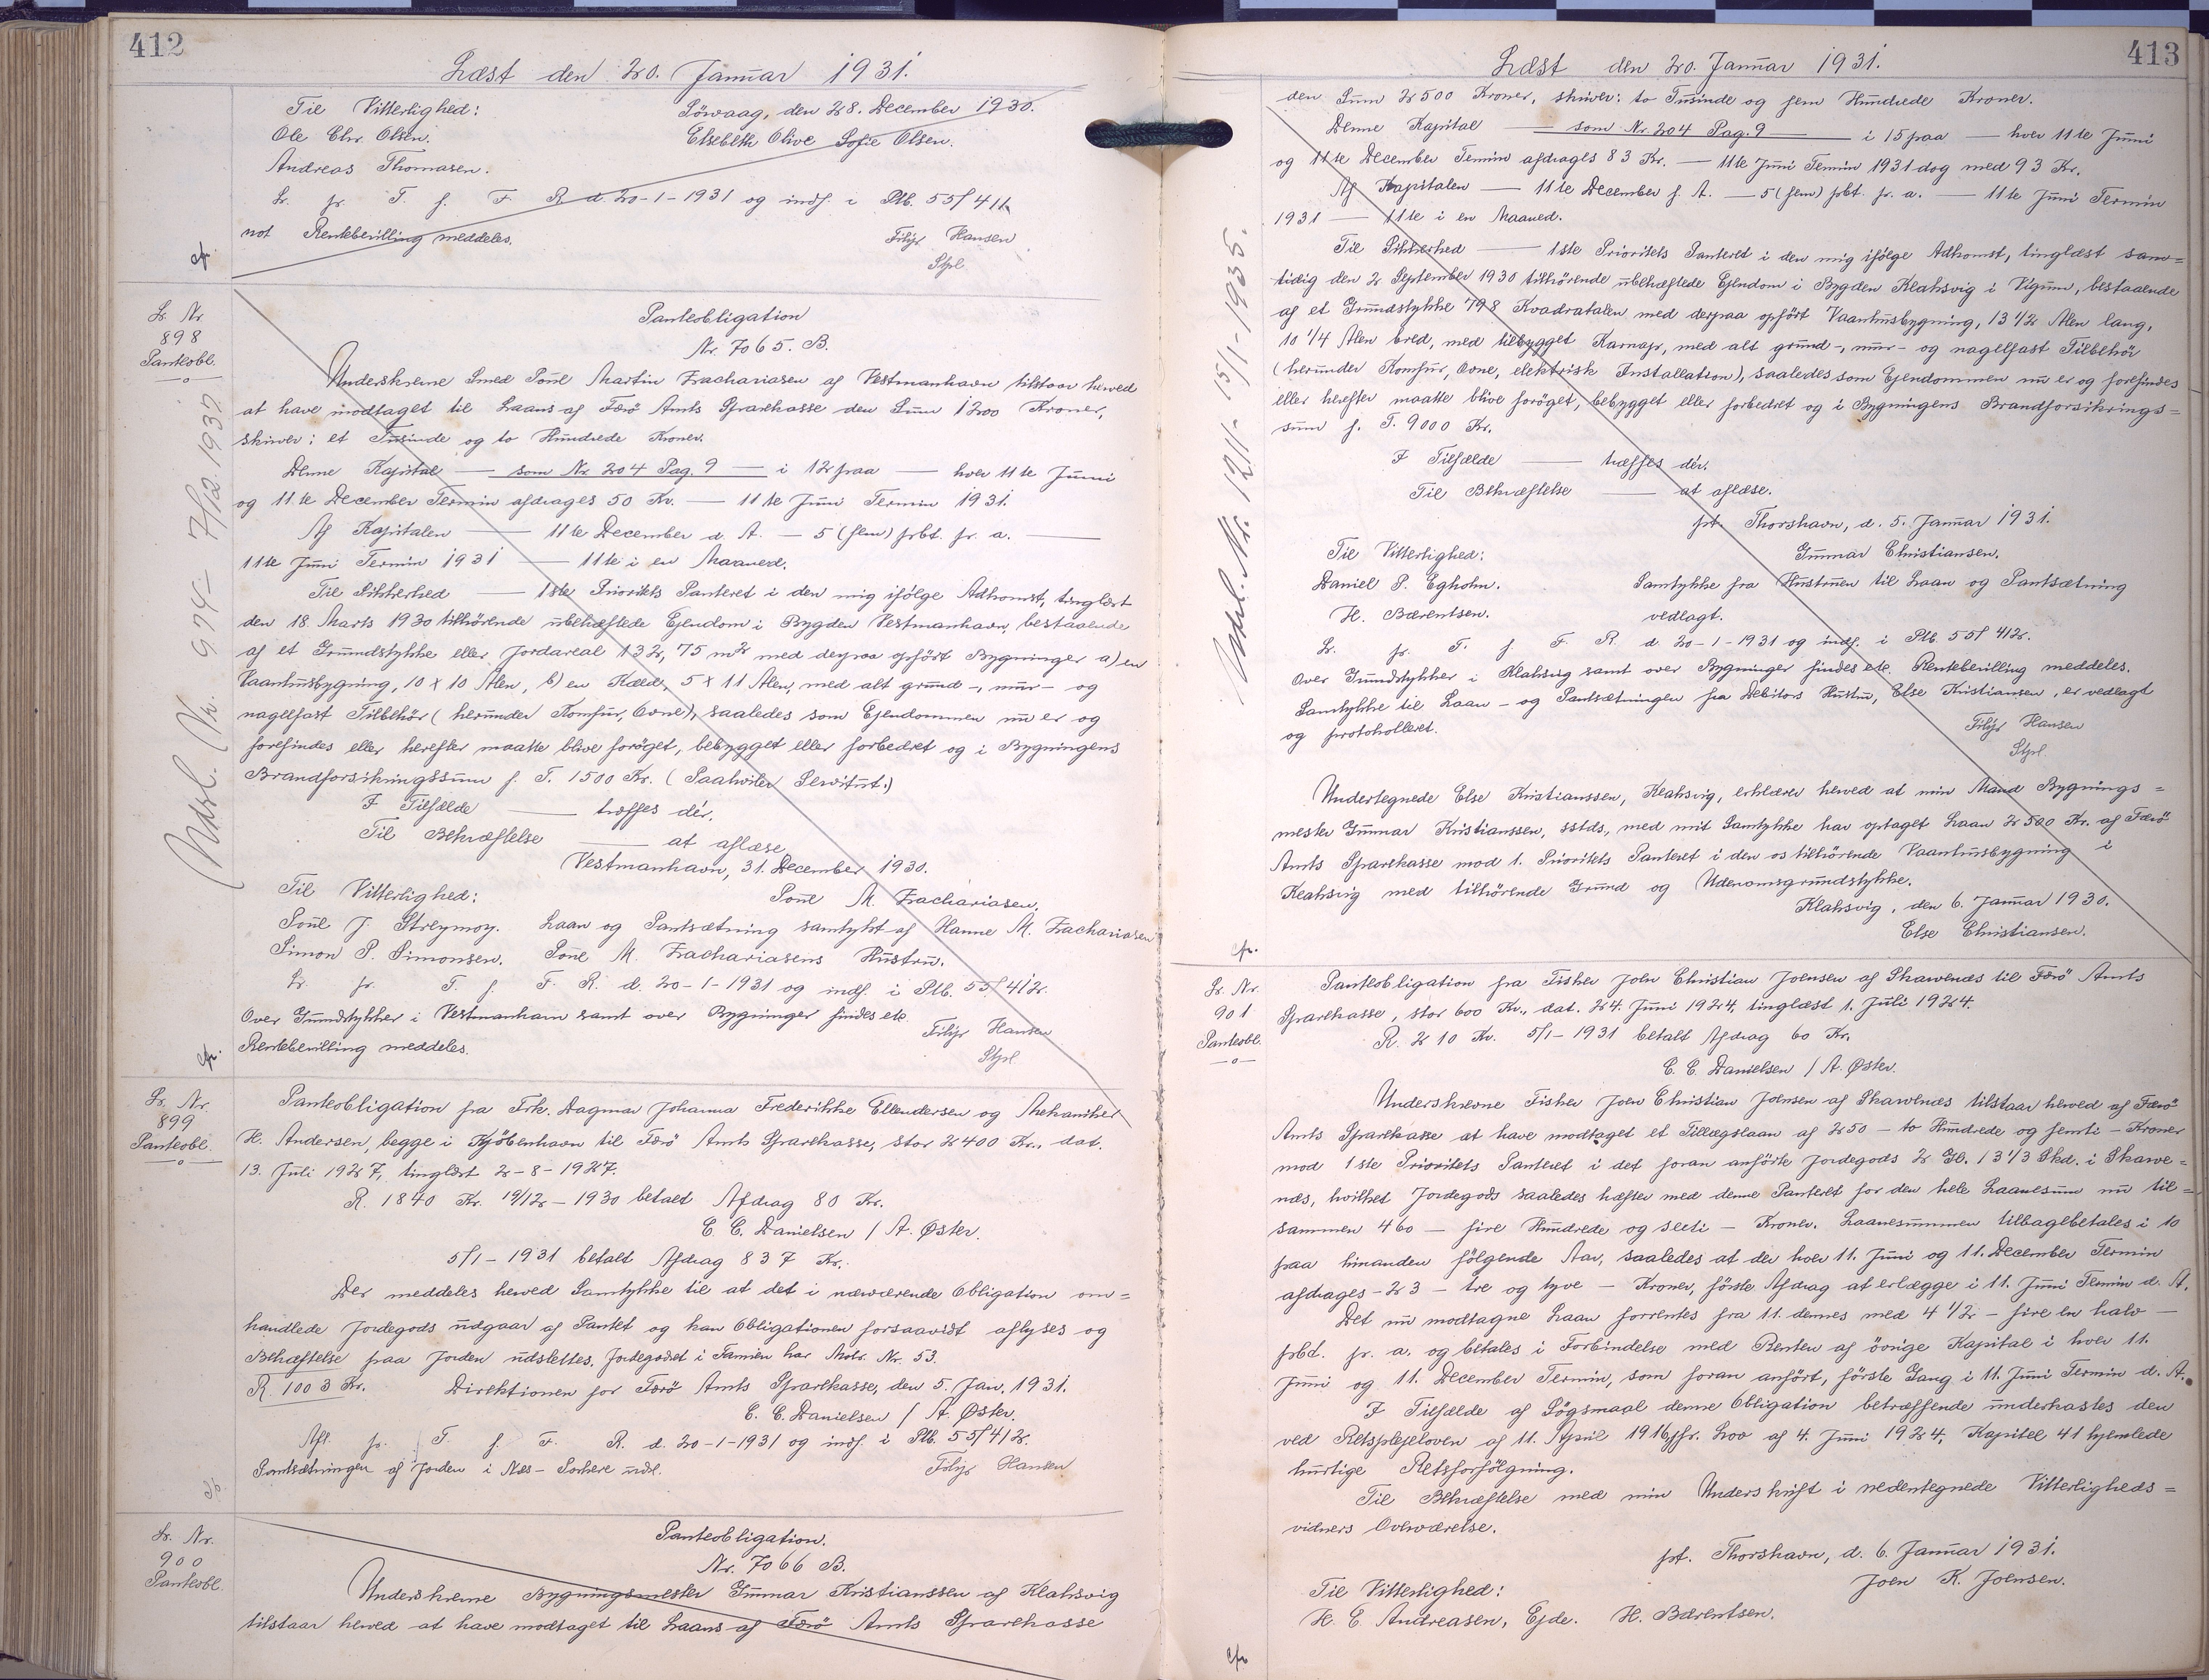 412
Læst den 20. Januar 1931.
Til Vitterlighed:
Sörvaag, den 28. December 1930.
Ole Chr. Olsen.
Elsebeth Olive Sofie Olsen.
Andreas Thomasen.
Lr. pr. T. f. F. R. d. 20-1-1931 og indf. i Ptb. 55/411
not Rentebevilling meddeles.
Filip Hansen
Stpl.
cfr.
Lr. Nr.
898
Panteobl.
Ndsl. Nr. 974 - 7/12. 1932.
Panteobligation
Nr. 7065. B.
Underskrevne Smed Poul Martin Zachariasen af Vestmanhavn tilstaar herved
at have modtaget til Laans af Færö Amts Sparekasse den Sum 1200 Kroner,
skriver: et Tusinde og to Hundrede Kroner.
Denne Kapital — som Nr. 204 Pag. 9 — i 12 paa — hver 11te Juni
og 11.te December Termin afdrages 50 Kr. — 11te Juni Termin 1931.
Af Kapitalen — 11te December d. A. — 5 (fem) pct. pr. a. —
11te Juni Termin 1931 — 11te i en Maaned.
Til Sikkerhed — 1ste Prioritets Panteret i den mig ifölge Adkomst, tinglæst
den 18 Marts 1930 tilhörende ubehæftede Ejendom i Bygden Vestmanhavn, bestaaende
af et Grundstykke eller Jordareal 132,75 m² med derpaa opfört Bygninger a) en
Vaanhusbygning, 10 x 10 Alen, b) en Kæld, 5 x 11 Alen, med alt grund-, mur- og
nagelfast Tilbehör (herunder Komfur, Ovne), saaledes som Ejendommen nu er og
forefindes eller herefter maatte blive foröget, bebygget eller forbedret og i Bygningens
Brandforsikringssum f. T. 1500 Kr. (Paahviler Servitut.)
I Tilfælde — træffes dér.
Til Bekræftelse — at aflæse.
Vestmanhavn, 31. December 1930.
Til Vitterlighed:
Poul M. Zachariasen.
Poul J. Streymoy. Laan og Pantsætning samtykt af Hanne M. Zachariasen
Simon P. Simonsen. Poul M. Zachariasens Hustru.
Lr. pr. T. f. F. R. d. 20-1-1931 og indf. i Ptb. 55/412.
Over Grundstykker i Vestmanhavn samt over Bygninger findes etc.
Rentebevilling meddeles.
Filip Hansen
Stpl.
cfr.
Lr. Nr.
899
Panteobl.
Panteobligation fra Frk. Dagmar Johanna Frederikke Ellendersen og Mekaniker
H. Andersen, begge i Kjöbenhavn til Færö Amts Sparekasse, stor 2400 Kr., dat.
13. Juli 1927, tinglæst 2-8-1927.
R. 1840 Kr. 19/12-1930 betalt Afdrag 80 Kr.
C. C. Danielsen / A. Øster.
5/1-1931 betalt Afdrag 837 Kr.
Der meddeles herved Samtykke til at det i nærværende Obligation om=
handlede Jordegods udgaar af Pantet og kan Obligationen forsaavidt aflyses og
Behæftelse paa Jorden udslettes. Jordegodset i Famien har Matr. Nr. 53.
R. 1003 Kr. Direktionen for Færö Amts Sparekasse, den 5. Jan. 1931.
C. C. Danielsen / A. Øster.
Afl. pr. T. f. F. R. d. 20-1-1931 og indf. i Ptb. 55/412.
Pantsætningen af Jorden i Næs-Porkere udsl.
Filip Hansen
Lr. Nr.
900
Panteobl.
Panteobligation.
Nr. 7066 B.
Underskrevne Bygningsmester Gunnar Kristianssen af Klaksvig
tilstaar herved at have modtaget til Laans af Færö Amts Sparekasse
413
Læst den 20. Januar 1931.
den Sum 2500 Kroner, skriver: to Tusinde og fem Hundrede Kroner.
Denne Kapital — som Nr. 204 Pag. 9 — i 15 paa — hver 11te Juni
og 11te December Termin afdrages 83 Kr. — 11te Juni Termin 1931 dog med 93 Kr.
Af Kapitalen — 11te December f. A. — 5 (fem) pct. pr. a. — 11te Juni Termin
1931 — 11te i en Maaned.
Til Sikkerhed — 1ste Prioritets Panteret i den mig ifölge Adkomst, tinglæst sam=
tidig den 2 September 1930 tilhörende ubehæftede Ejendom i Bygden Klaksvig i Vigum, bestaaende
af et Grundstykke 798 Kvadratalen med derpaa opfört Vaanhusbygning, 13 1/2 Alen lang,
10 1/4 Alen bred, med tilbygget Karnap, med alt grund-, mur- og nagelfast Tilbehör
(herunder Komfur, Ovne, elektrisk Installation), saaledes som Ejendommen nu er og forefindes
eller herefter maatte blive foröget, bebygget eller forbedret og i Bygningens Brandforsikrings=
sum f. T. 9000 Kr.
I Tilfælde — træffes dér.
Til Bekræftelse — at aflæse.
pt. Thorshavn, d. 5. Januar 1931.
Til Vitterlighed:
Gunnar Christiansen.
Daniel P. Egholm.
Samtykke fra Hustruen til Laan og Pantsætning
H. Bærentsen.
vedlagt.
Lr. pr. T. f. F. R. d. 20-1-1931 og indf. i Ptb. 55/412.
Over Grundstykker i Klaksvig samt over Bygninger findes etc. Rentebevilling meddeles.
Samtykke til Laan- og Pantsætningen fra Debitors Hustru, Else Kristiansen, er vedlagt
og protokolleret.
Filip Hansen
Stpl.
Ndsl. Nr. 1211 - 15/1-1935.
Undertegnede Else Kristianssen, Klaksvig, erklærer herved at min Mand Bygnings=
mester Gunnar Kristianssen, sstds., med mit Samtykke har optaget Laan 2500 Kr. af Færö
Amts Sparekasse mod 1. Prioritets Panteret i den os tilhörende Vaanhusbygning i
Klaksvig med tilhörende Grund og Udenomsgrundstykke.
Klaksvig, den 6. Januar 1930.
Else Christiansen.
cfr.
Lr. Nr.
901
Panteobl.
Panteobligation fra Fisker Joen Christian Joensen af Skarvenæs til Færö Amts
Sparekasse, stor 600 Kr., dat. 24. Juni 1924, tinglæst 1. Juli 1924.
R. 210 Kr. 5/1-1931 betalt Afdrag 60 Kr.
C. C. Danielsen / A. Øster.
Underskrevne Fisker Joen Christian Joensen af Skarvenæs tilstaar herved af Færö
Amts Sparekasse at have modtaget et Tillægslaan af 250 - to Hundrede og femti - Kroner
mod 1ste Prioritets Panteret i det foran anförte Jordegods 2 Gl. 13 1/3 Skd. i Skarve=
næs, hvilket Jordegods saaledes hæfter med denne Panteret for den hele Laanesum nu til=
sammen 460 - fire Hundrede og seeti - Kroner. Laanesummen tilbagebetales i 10
paa hinanden fölgende Aar, saaledes at der hver 11. Juni og 11. December Termin
afdrages - 23 - tre og tyve - Kroner, förste Afdrag at erlægge i 11. Juni Termin d. A.
Det nu modtagne Laan forrentes fra 11. dennes med 4 1/2 - fire en halv -
pct. pr. a. og betales i Forbindelse med Renten af övrige Kapital i hver 11.
Juni og 11. December Termin, som foran anfört, förste Gang i 11. Juni Termin d. A.
I Tilfælde af Sögsmaal denne Obligation betræffende underkastes den
ved Retsplejeloven af 11. April 1916, jfr. Lov af 4. Juni 1924, Kapitel 41 hjemlede
hurtige Retsforfölgning.
Til Bekræftelse med min Underskrift i nedentegnede Vitterligheds=
vidners Overværelse.
pt. Thorshavn, d. 6. Januar 1931.
Til Vitterlighed:
Joen K. Joensen.
H. C. Andreasen, Ejde. H. Bærentsen.
cfr